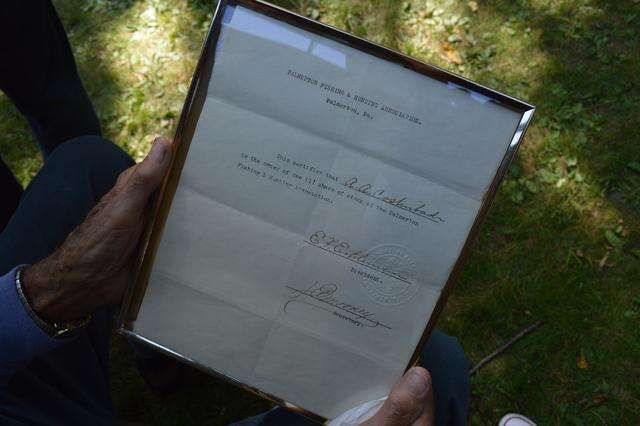 PALMERTON FISHING & HUNTING ASSOCIATION.
Palmerton, Pa.
This certifies that
is the owner of one (1) share of stock of the Palmerton
Fishing & Hunting Association.
President.
Secretary.